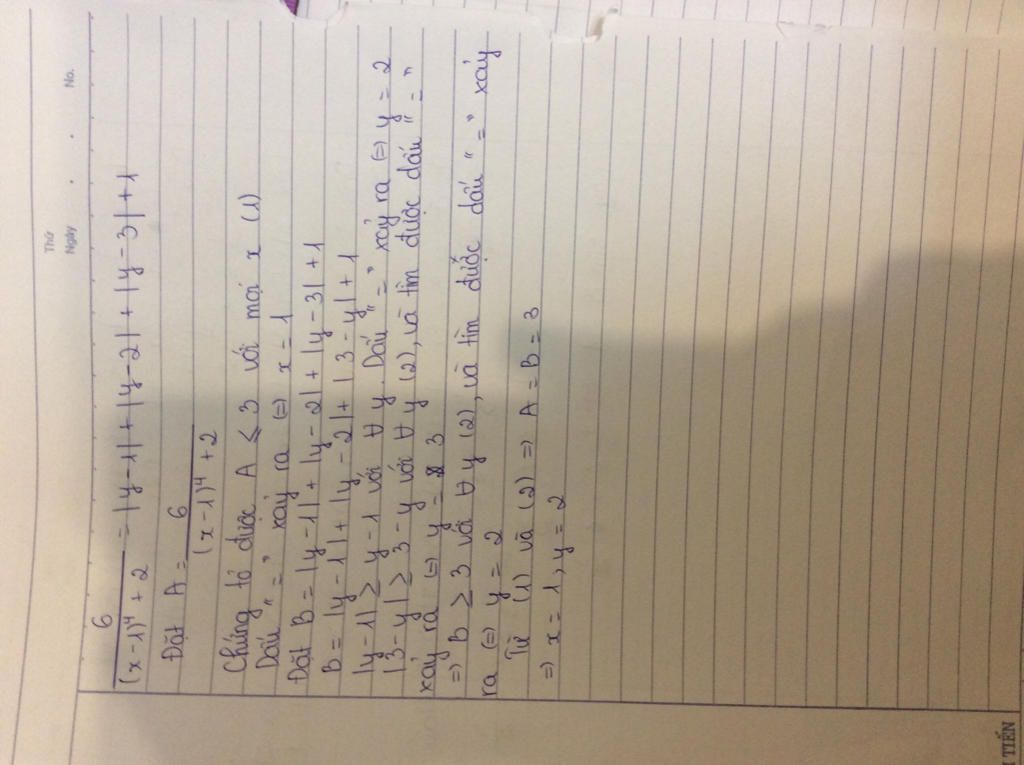 Thứ
Ngày . . No.
6
(x-1)⁴ + 2 = |y-1| + |y-2| + |y-3| + 1
Đặt A = 6
(x-1)⁴ + 2
Chứng tỏ được A ≤ 3 với mọi x (1)
Dấu "=" xảy ra (=) x = 1
Đặt B = |y-1| + |y-2| + |y-3| + 1
B = |y-1| + |y-2| + |3-y| + 1
|y-1| ≥ y-1 với ∀ y. Dấu "=" xảy ra (=) y = 2
|3-y| ≥ 3-y với ∀ y (2), và tìm được dấu "="
xảy ra (=) y = 3
=) B ≥ 3 với ∀ y (2), và tìm được dấu "=" xảy
ra (=) y = 2
Từ (1) và (2) =) A = B = 3
=) x = 1, y = 2
TIẾN